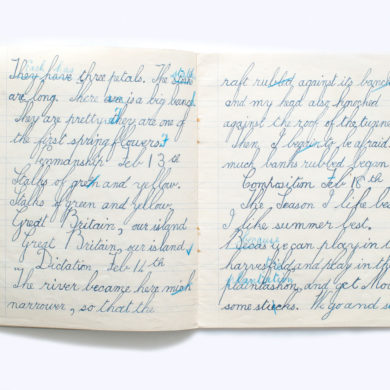 They have three petals. The
are long. There is a big band
They are pretty they are one of
the first spring flowers.
Penmanship Feb 13th
Stalks of green and yellow.
Stalks of green and yellow.
Great Britain, our island
Great Britain, our island
Dictation. Feb 14th
The river became here much
narrower, so that the
raft rubbed against its banks
and my head also knocked
against the roof of the
Then I began to be afraid
much banks rubbed began
Composition Feb 18th
The Season I like
I like summer best.
because
Because we can play in the
harvestfield and play in the
plantation
plantashon, and get
some sticks. We go and